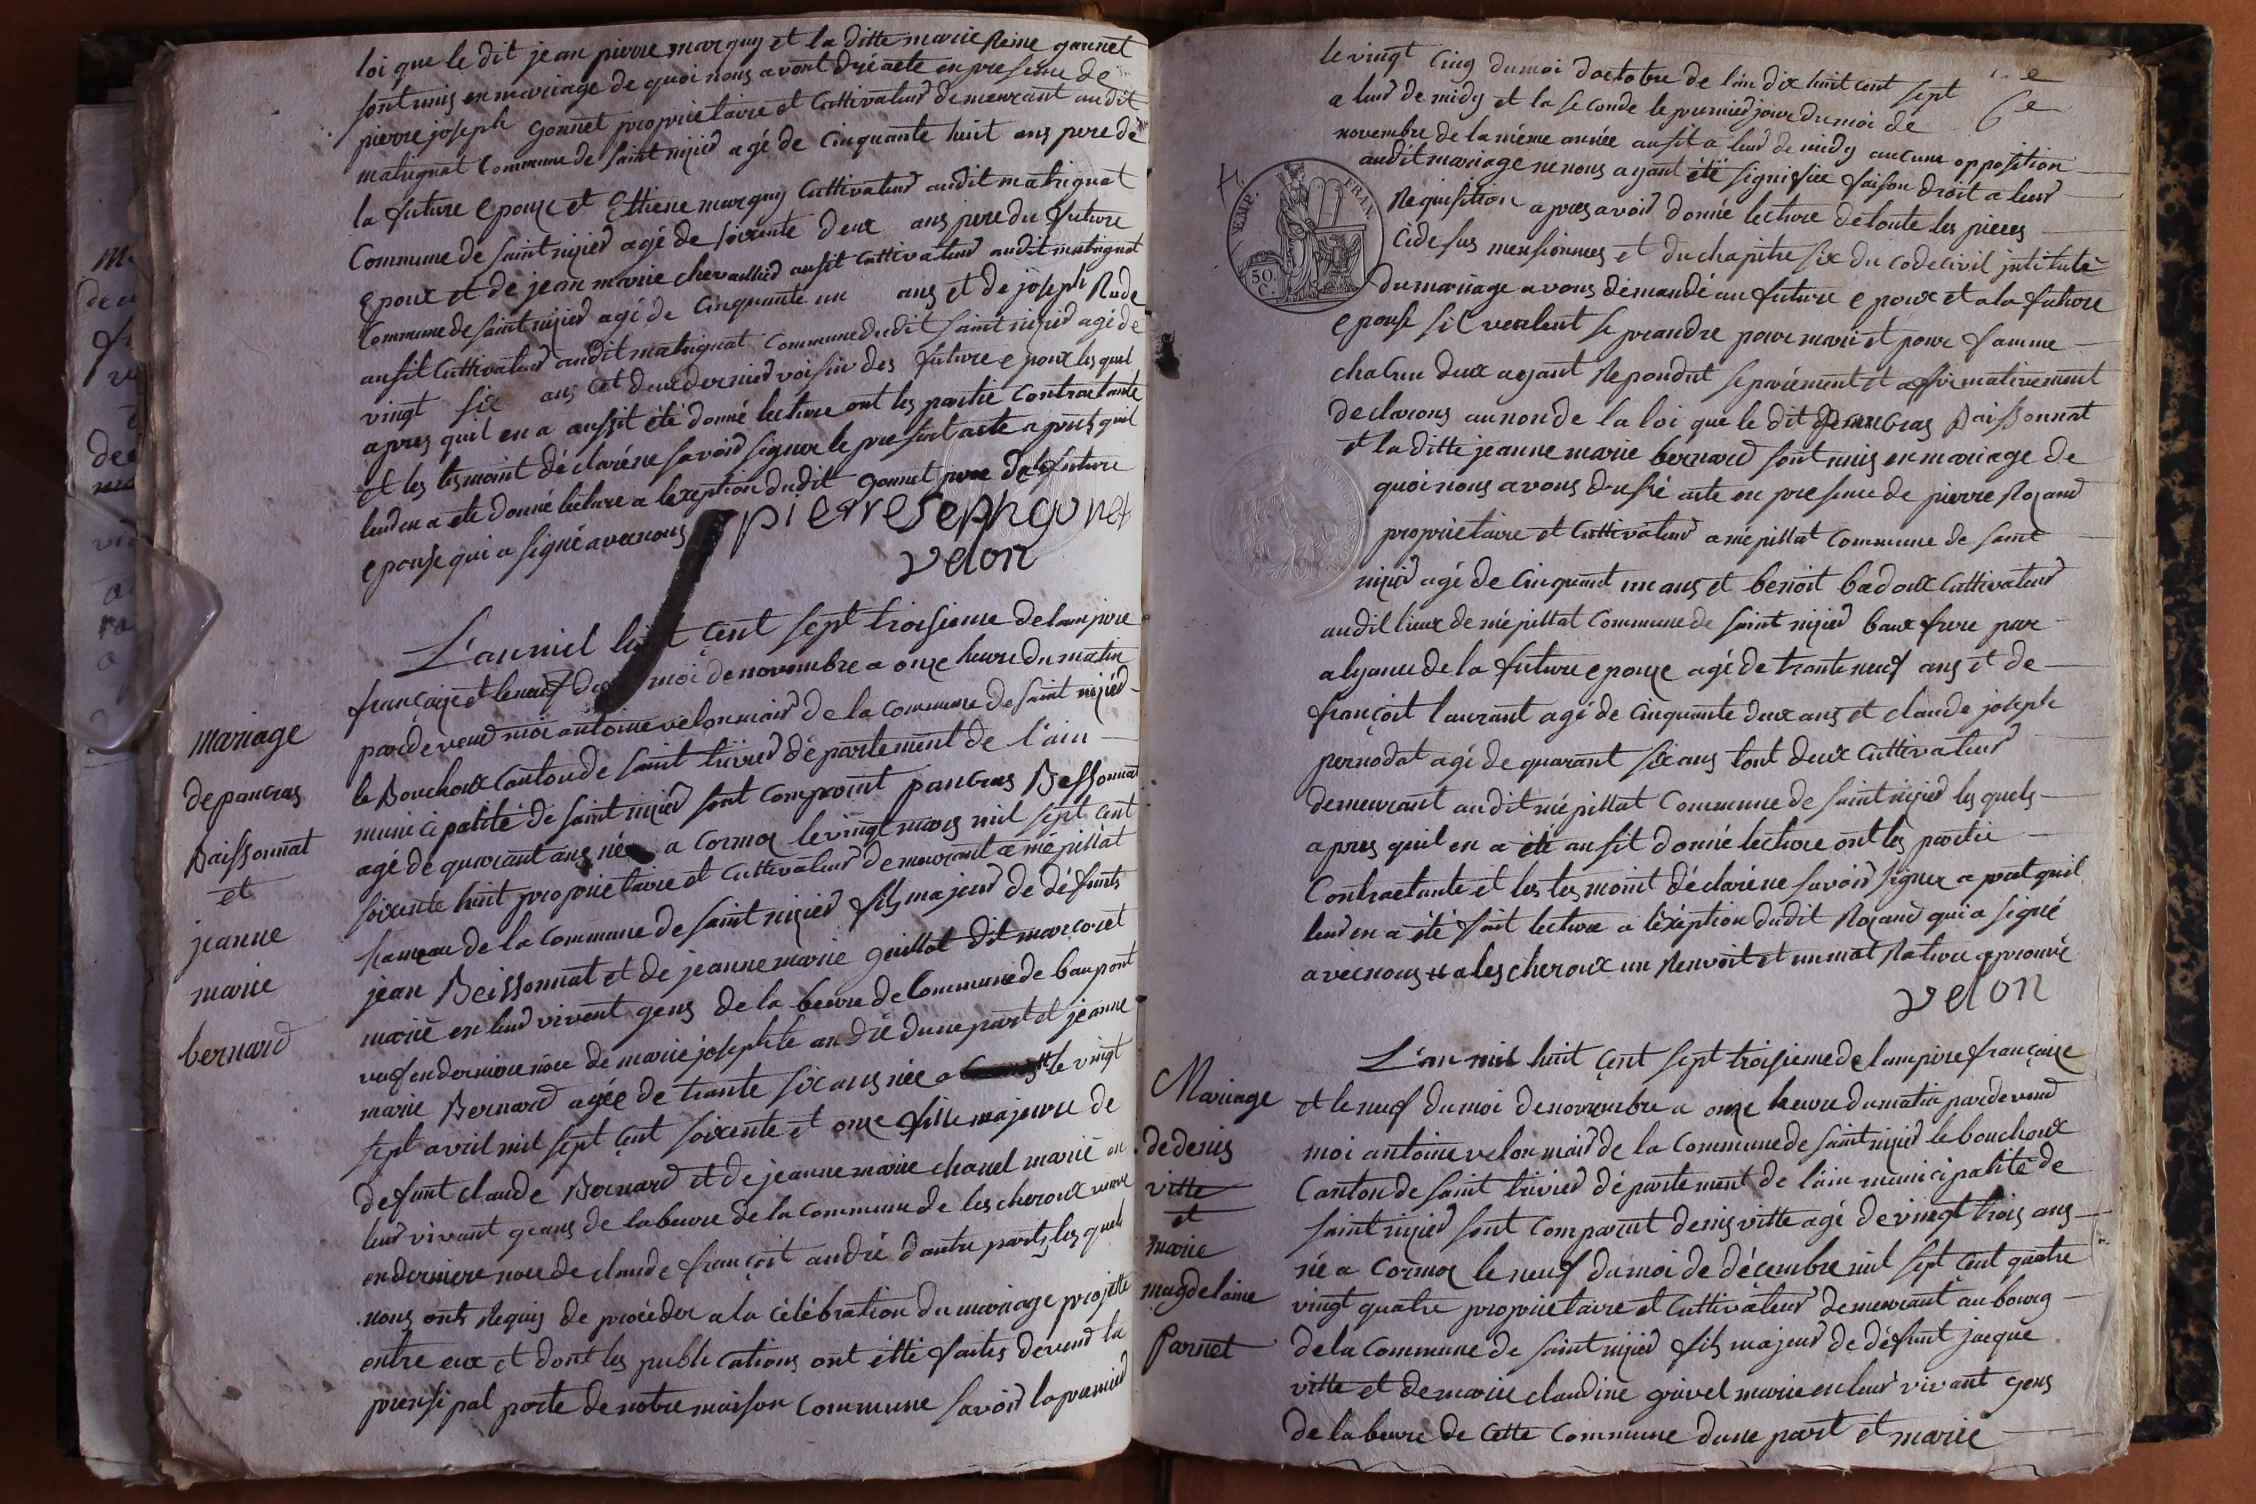 loi que le dit jean pierre marguy et la ditte marie Reine gonnet
sont unis en mariage de quoi nous avont dréé acte en presence de
pierre joseph gonnet proprietaire et Cultivateur demeurant audit
matrignat Commune de saint nizier agé de Cinquante huit ans pere de
la future epouze et Ettiene marguy Cultivateur audit matrignat
Commune de saint nizier agé de soixente deux ans pere du future
epoux et de jean marie chevaillier ausit Cultivateur audit matrignat
Commune de saint nizier agé de Cinquante un ans et de joseph Rude
ausit Cultivateur audit matrignat Commune dudit saint nizier agé de
vingt six ans cet deux dernier voisin des future epoux lesquel
apres quil en a aussit été donné lecture ont les partie Contractante
et les tesmoint déclaré ne savoir signer le present acte a prest quil
leur en a ete donné lecture a lexeption dudit gonnet pere de la future
epouse qui a signé avec nous
pierresephgonet
velon
L'an mil huit çent sept troisieme de lampire
françaize et le neuf du moi de novembre a onze heure du matin
pardeveud moi antoine velon mair de la Commune de saint nizier
le Bouchoux Canton de saint trivier département de l'ain
municipalité de saint nizier sont comparoit pancras Bessonnat
agé de quarant ans né a Cormoz le vingt mars mil sept cent
soixente huit proprietaire et Cultivateur demeurant a mépillat
hameau de la Commune de saint nizier fils majeur de défunts
jean Beissonnat et de jeanne marie guillot dit marcoret
marié en leur vivent gens de la beure de Commune de baupont
veuf en derniere nôce de marie josephte andré dune part et jeanne
marie Bernard agée de trante six ans née a le vingt
sept avril mil sept çent soixente et onze fille majeure de
defunt claude Bernard et de jeanne marie chanel marié en
leur vivant geans de labeure de la Commune de lescheroux veuve
en derniere noce de claude françoit andré dautre part, lesquels
nous onts Requis de procéder a la célébration du mariage projetté
entre eux et dont les publications ont étté faites devend la
prensipal porte de notre maison Commune savoir la premier
mariage
de pancras
Baissonnat
et
jeanne
marie
bernard
le vingt Cinq du moi doctobre de l'an dix huit cent sept
a leur de midy et la seconde le premier jour du moi de
novembre de la méme année ausit a leur de midy aucune opposition
audit mariage ne nous ayant été signifiée faison droit a leur
Requisition a pres avoir donné lecture de toute les pieces
Cidesus mensionnees et du chapitre six du code civil jntitulé
du mariage avons demandé au future epoux et a la future
epouse sil veulent se prandre pour mari et pour famme
chacun deux ayant Repondut separément et affirmativement
declarons au non de la loi que le dit pancras Baissonnat
et la ditte jeanne marie bernard sont unis en mariage de
quoi nous avons dressé acte en presence de pierre Rozand
proprietaire et Cultivateur a mépillat Commune de saint
nizier agé de Cinquant un ans et benoit badoux Cultivateur
audit lieux de mépillat Commune de saint nizier baux frere par
alyance de la future epouze agé de trante neuf ans et de
françoit laurant agé de Cinquante deux ans et claude joseph
pernodat agé de quarant six ans tout deux Cultivateur
demeurant audit mépillat Commune de saint nizier lesquels
a pres quil en a été ausit donné lecture ont les partie
Contractante et les tesmoint déclaré ne savoir signer a prest quil
leur en a été fait lecture a léxéption dudit Rozand qui a signé
avec nous # a lescheroux un Renvoit et un mot Rature aprouvé
velon
EMP. FRAN.
50 C.
Mariage
de denis
vitte
et
marie
magdelaine
Parnet
L'an mil huit çent sept troisieme de lampire françaize
et le neuf du moi de novembre a onze heure du matin pardevend
moi antoine velon mair de la Commune de saint nizier le bouchoux
Canton de saint trivier département de lain municipalité de
saint nizier sont comparut denis vitte agé de vingt trois ans
né a Cormoz le neuf du moi de décembre mil sept çent quatre
vingt quatre proprietaire et Cultivateur demeurant au bourg
de la Commune de saint nizier fils majeur de défunt jacque
vitte et de marie claudine grivel marié en leur vivant gens
de labeure de Cette Commune dune part et marie